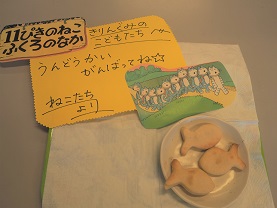 11ぴきのねこ
ふくろのなか
きりんぐみの
こどもたち へ
うんどうかい
がんばってね☆
ねこたち
より